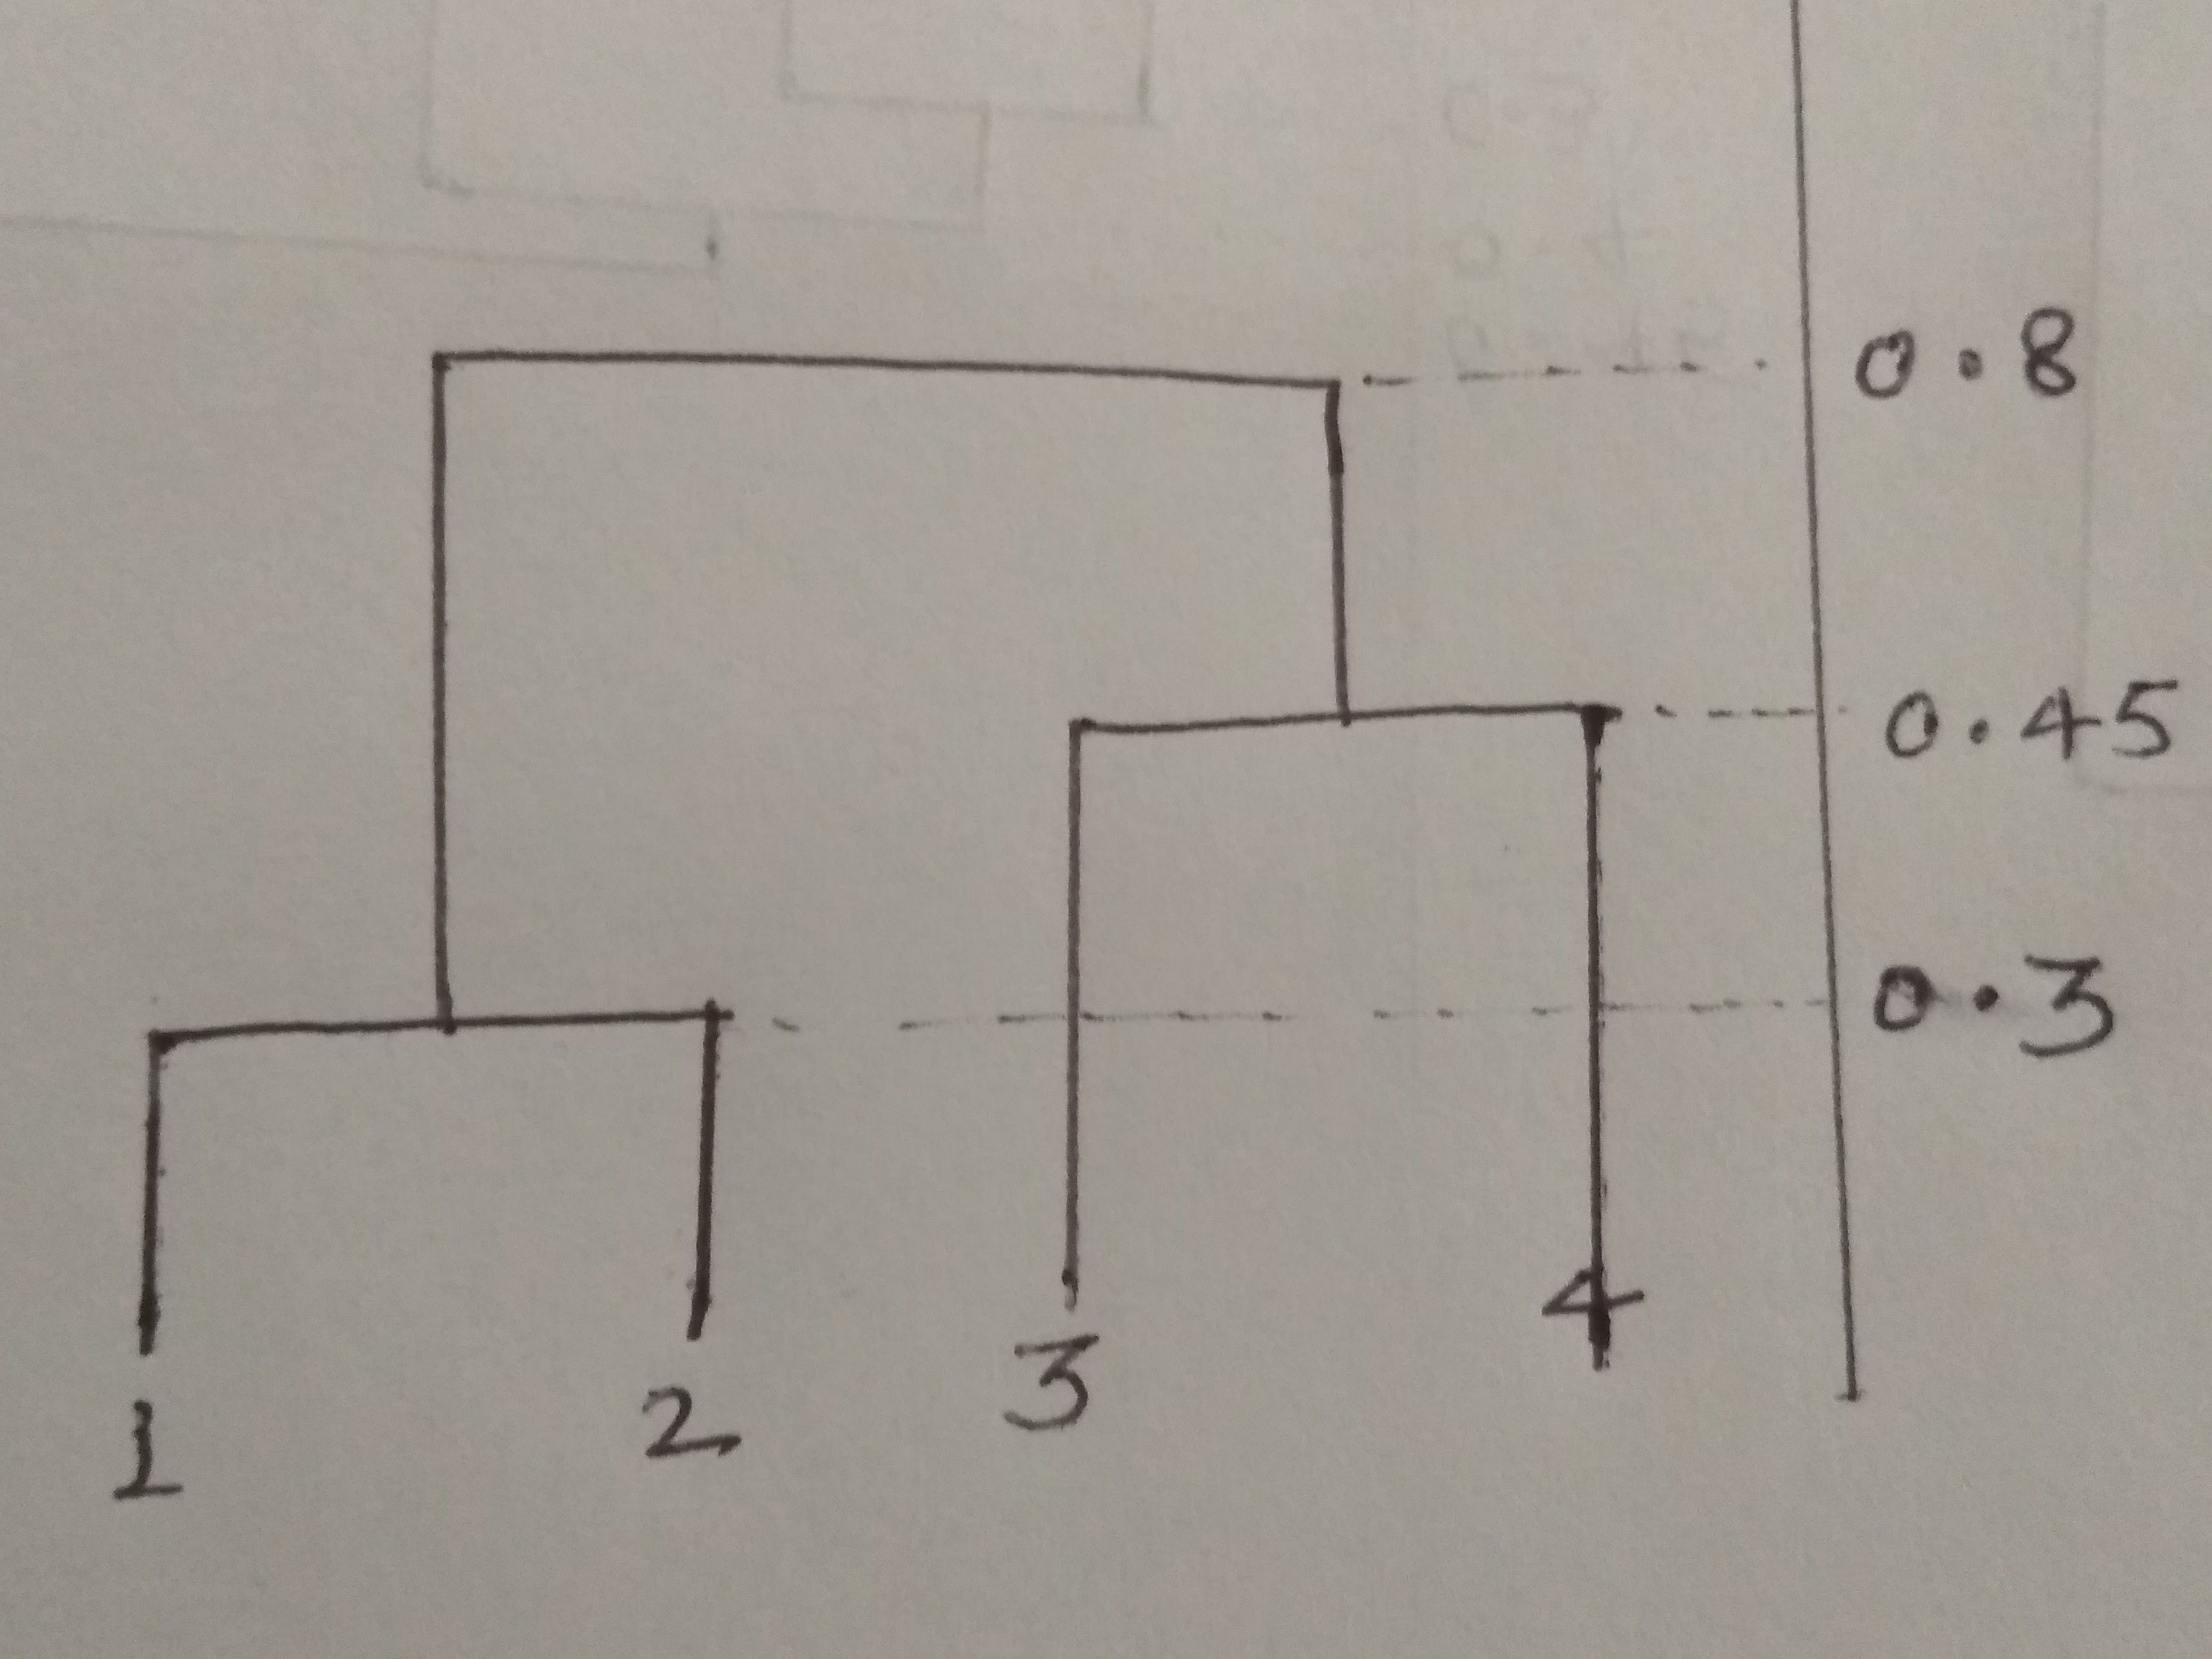 0.8
0.45
0.3
1 2 3 4